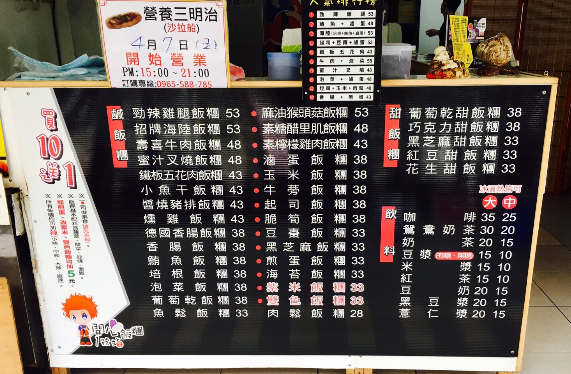 營養三明治
(沙拉船)
4月7日(五)
開始營業
PM:15:00~21:00
0965-588-785
人氣排行榜
買10送1
鹹飯糰
勁辣雞腿飯糰 53
招牌海陸飯糰 53
壽喜牛肉飯糰 48
蜜汁叉燒飯糰 48
鐵板五花肉飯糰 43
小魚干飯糰 43
醬燒豬排飯糰 43
燻雞飯糰 43
德國香腸飯糰 38
香腸飯糰 38
鮪魚飯糰 38
培根飯糰 38
泡菜飯糰 38
葡萄乾飯糰 38
魚鬆飯糰 33
麻油猴頭菇飯糰 53
素糖醋里肌飯糰 48
素檸檬雞肉飯糰 43
滷蛋飯糰 38
玉米飯糰 38
牛蒡飯糰 38
起司飯糰 38
脆筍飯糰 38
豆棗飯糰 33
黑芝麻飯糰 33
煎蛋飯糰 33
海苔飯糰 33
紫米飯糰 33
雙色飯糰 33
肉鬆飯糰 28
甜飯糰
葡萄乾甜飯糰 38
巧克力甜飯糰 38
黑芝麻甜飯糰 33
紅豆甜飯糰 33
花生甜飯糰 33
飲料
冰溫熱皆可
大 中
咖啡 35 25
鴛鴦奶茶 30 20
奶茶 20 15
豆漿 15 10
米漿 15 10
紅茶 15 10
豆奶 20 15
黑豆漿 20 15
薏仁漿 20 15